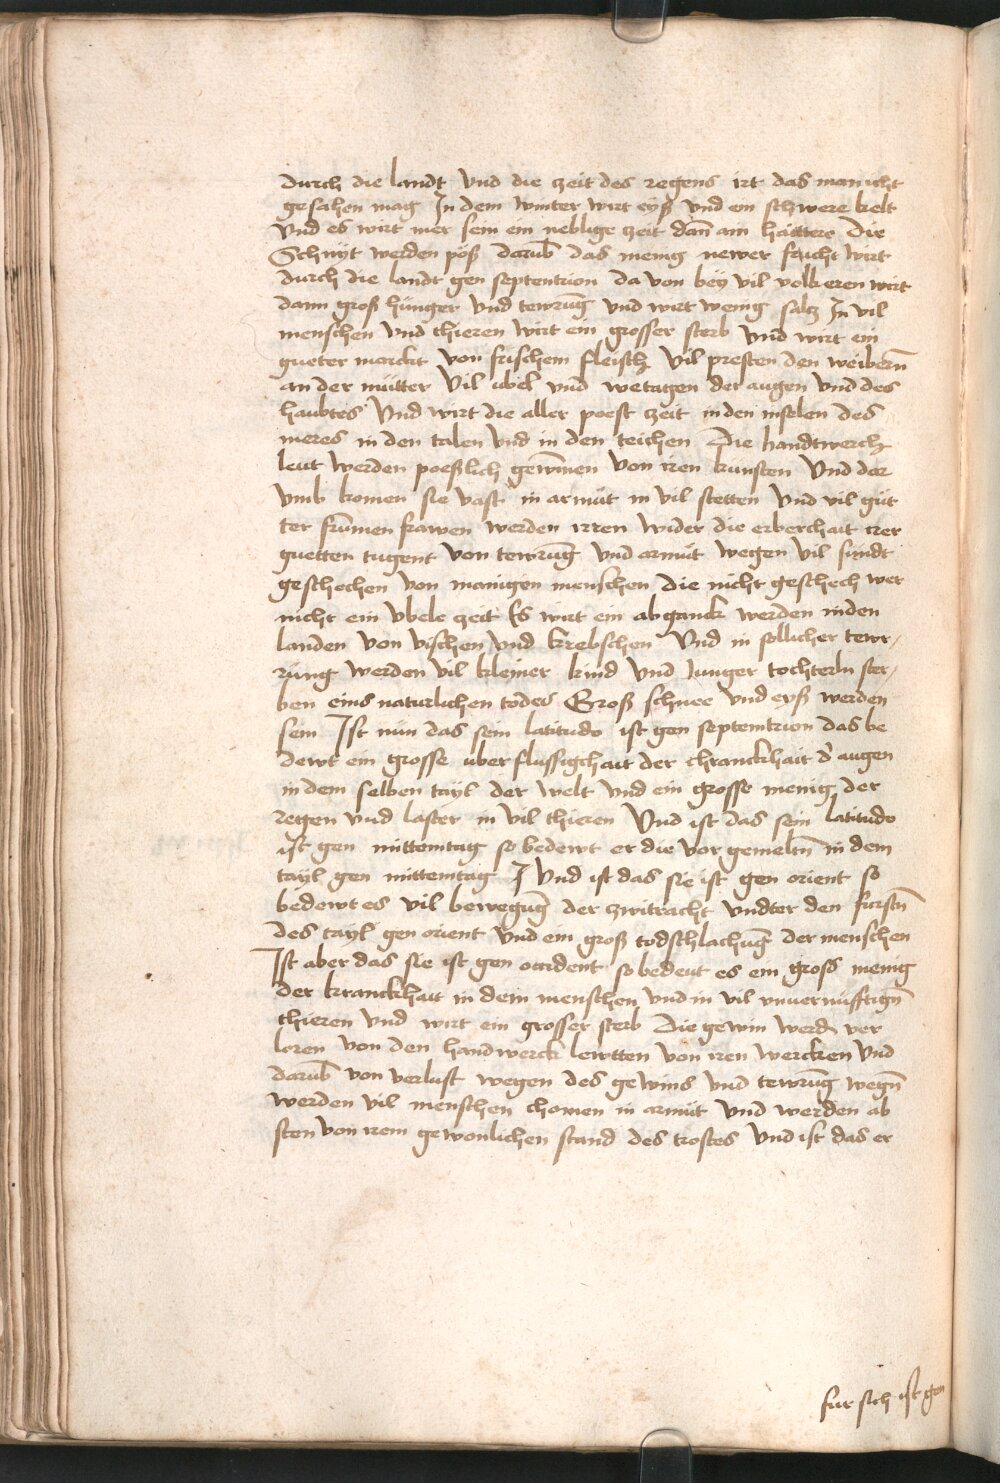 durch die landt vnd die zeit des regens irt das man icht
gesahen mag In dem winter wirt eyß vnd ein schwere kelt
vnd es wirt mer sein ein neblige zeit dan̄ ain haittere Die
Schnyt werden pöß darub̄ das menig newer frucht wirt
durch die landt gen septentrion da von bey vil volkeren wirt
dann groß hunger vnd tewrun̄g vnd wirt wenig saltz In vil
menschen vnd thieren wirt ein grosser sterb vnd wirt ein
gueter marckt von frischem fleisch vil presten den weibern̄
an der mutter vil ubel vnd wetagen der augen vnd des
haubtes Vnd wirt die aller poest zeit in den inselen des
meres in den talen vnd in den teichen Die handtwerch
leut werden poeßlich gewin̄en von iren kunsten Vnd dar
vmb komen sie vast in armut in vil stetten Vnd vil gut
ter frum̄en frawen werden irren wider die erberchait irer
guetten tugent von tewrun̄g vnd armut wegen vil sundt
geschechen von manigen menschen die nicht geschech wer
nicht ein vbele zeit Es wirt ein abganck werden in den
landen von vischen vnd krebschen Vnd in sollicher tewr⸗
rung werden vil kleiner kind vnd Junger tochterln ster⸗
ben eins naturlichen todes Groß schnee vnd eyß werden
sein Ist nun das sein latitudo ist gen septemtrion das be
dewt ein grosse uberflussigchait der chranckhait d' augen
in dem selben tayl der welt vnd ein grosse menig der
regen vnd laster in vil thieren Vnd ist das sein latitudo
ist gen mittemtag so bedewt er die vor gemeltn̄ in dem
tayl gen mittemtag J Vnd ist das sie ist gen orient so
bedewt es vil bewegun̄g der zwitracht vndter den furstn̄
des tayl gen orient Vnd ein groß todschlachun̄g der menschen
Ist aber das sie ist gen occident so bedeut es ein gross menig
der kranckhait in dem menschen vnd in vil vnuernufftign̄
thieren vnd wirt ein grosser sterb Die gewin werd ver
loren von den handwerck lewtten von iren wercken Vnd
darub̄ von verlust wegen des gewins vnd tewrun̄g wegn̄
werden vil menschen chomen in armut vnd werden ab
sten von irem gewonlichen stand des trostes Vnd ist das er
fur sich ist gen